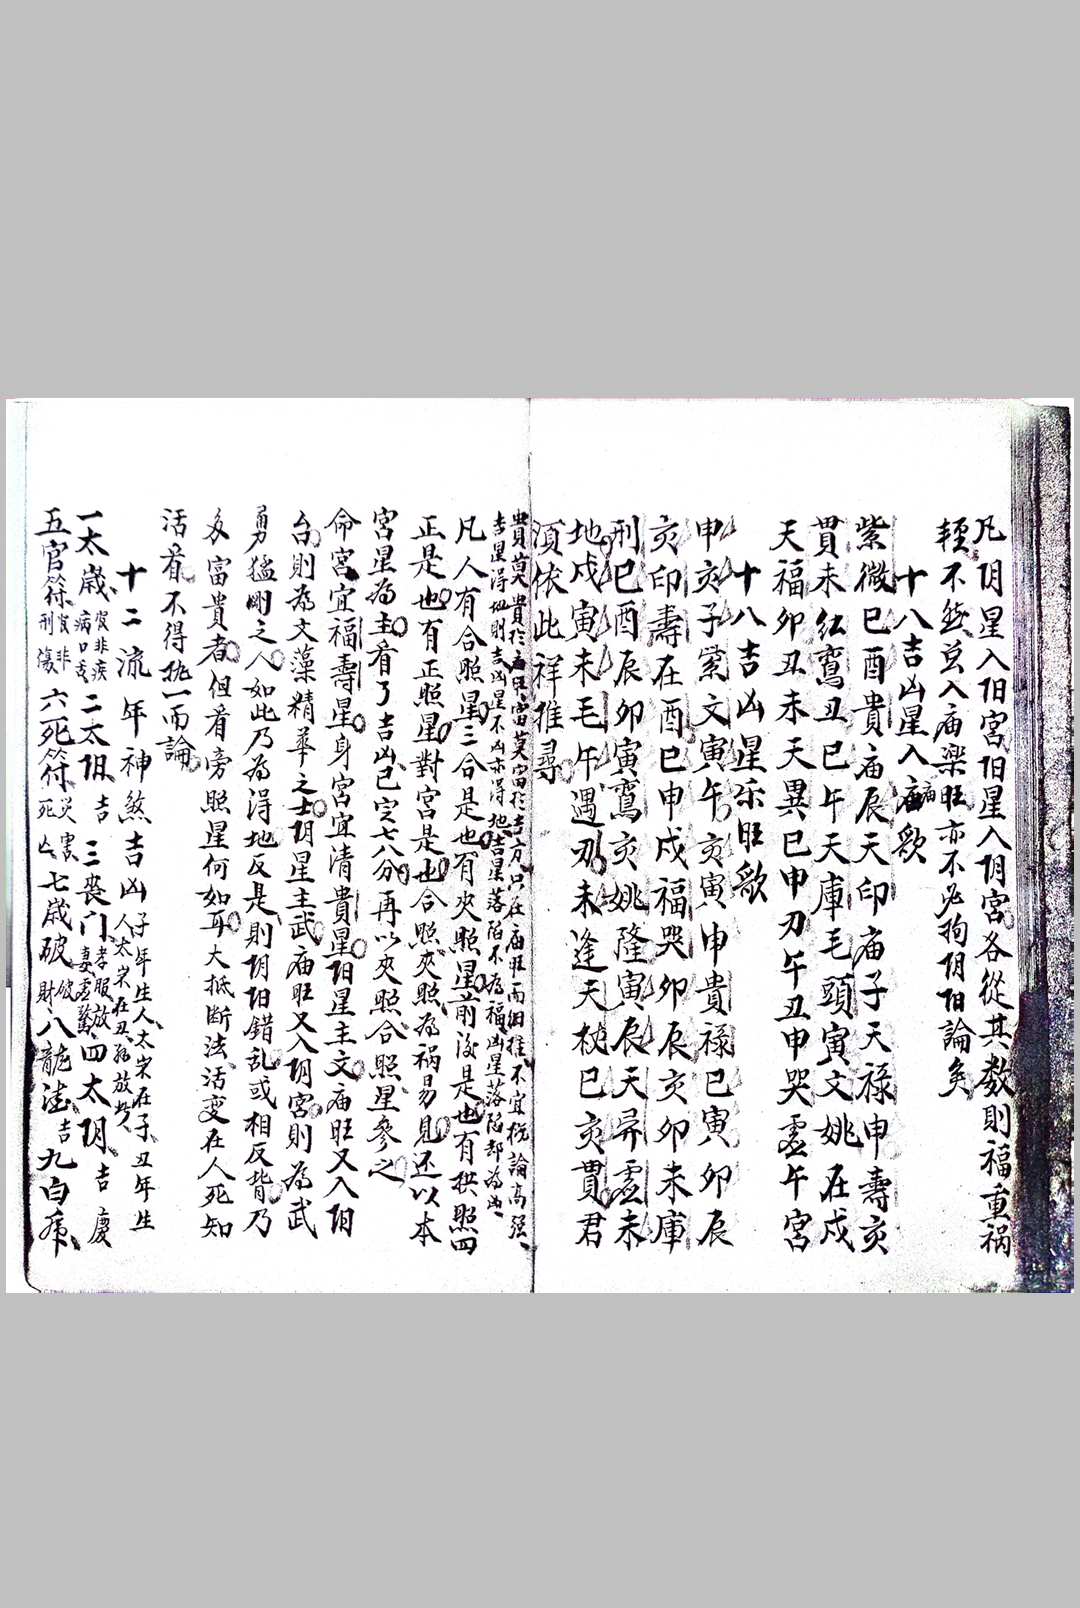 凡阴星入阳宫阳星入阴宫各從其数則福重祸
輕不然豆入庙樂旺亦不必拘阴阳論矣
十八吉凶星入庙歌
紫微巳酉貴庙辰天印庙子天禄申壽亥
貫未紅鸾丑巳午天庫毛頭寅文姚在戍
天福卯丑未天異巳申刃午丑申哭虚午宮
十八吉凶星乐旺歌
申亥子紫文寅午亥寅申貴禄巳寅卯辰
亥印壽在酉巳申戍福哭卯辰亥卯未庫
刑巳酉辰卯寅鸾亥姚隆寅辰天异虚未
地戍寅未毛午遇刃未逢天杖巳亥貫君
須依此祥推尋
貴莫貴於庙旺富莫富於吉方只在庙旺而細推不宜概論高强
吉星得地則吉凶星不凶亦得地吉星落陷不為福凶星落陷却為凶
凡人有合照星三合是也有夾照星前後是也有拱照四
正是也有正照星對宮是也合照夾照為祸易見还以本
宮星為主看了吉凶已定七八分再以夾照合照星參之
命宮宜福壽星身宮宜清貴星阳星主文庙旺又入阳
宫則為文藻精華之士阴星主武庙旺又入阴宮則為武
勇猛剛之人如此乃為得地反是則阴阳錯乱或相反背乃
多富貴者但看旁照星何如耳大抵断法活变在人死知
活看不得执一而論
十二流年神煞吉凶子年生人太岁在子丑年生人太岁在丑餘放此
一太歳官非疾病口舌二太阳吉三丧门孝服妻虚驚四太阴吉慶
五官符官非刑傷六死符災害死亡七歳破破財八龍德吉九白虎